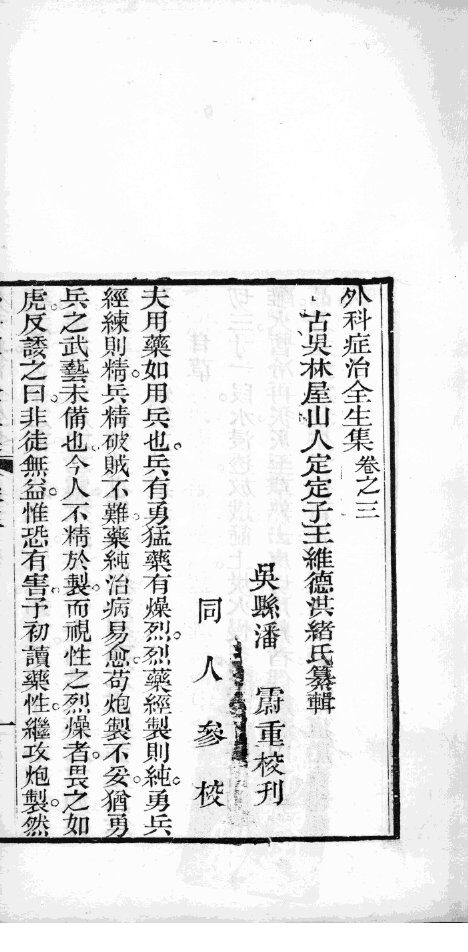 外科症治全生集卷之三
古吳林屋山人定定子王維德洪緒氏纂輯
吳縣潘 霨重校刊
同人參校
夫用藥如用兵也。兵有勇猛藥有燥烈。烈藥經製則純。勇兵
經練則精。兵精破賊不難。藥純治病易愈。苟炮製不妥猶勇
兵之武藝未備也。今人不精於製。而視性之烈燥者。畏之如
虎反諉之曰。非徒無益。惟恐有害。予初讀藥性。繼攻炮製。然